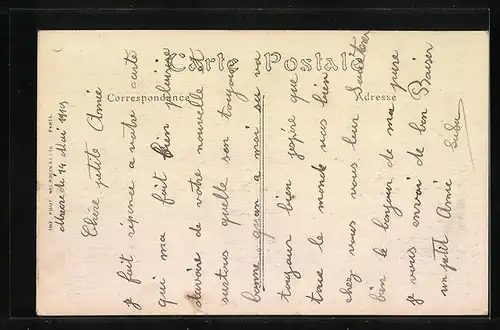 Carte Postale
Correspondance
Adresse
le 14 Mai 1919
Chère petite Amie
je fait réponce a votre carte
qui ma fait bien plaisire
davoire de votre nouvelle et
surtous quelle son toujour
bonne quan a moi sa va
toujour bien jespère que
tous le monde vas bien
chez vous vous leur
bien le bonjour de ma pare
je vous envoi de bon Baiser
ton petit Amie